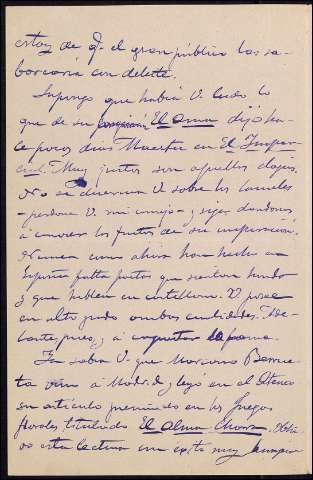 estoy de q. el gran público los sa-
borearía con deleite.
Supongo que habrá V. leido lo
que de su El ama dijo ha-
ce pocos dias Maeztu en El Impar-
cial. Muy justos son aquellos elogios.
No se duerma V. sobre los laureles
- perdone V. mi consejo - y siga dándonos
á conocer los frutos de su inspiración.
Nunca como ahora han hecho en
España falta poetas que sientan hondo
y que hablen en castellano. V. posee
en alto grado ambas cualidades. Ade-
lante, pues, y á conquistar la fama.
Ya sabrá V. que Mariano Berrue-
ta vino á Madrid y leyó en el Ateneo
su artículo premiado en los Juegos
florales titulado El alma charra. Obtu-
vo esta lectura un éxito muy